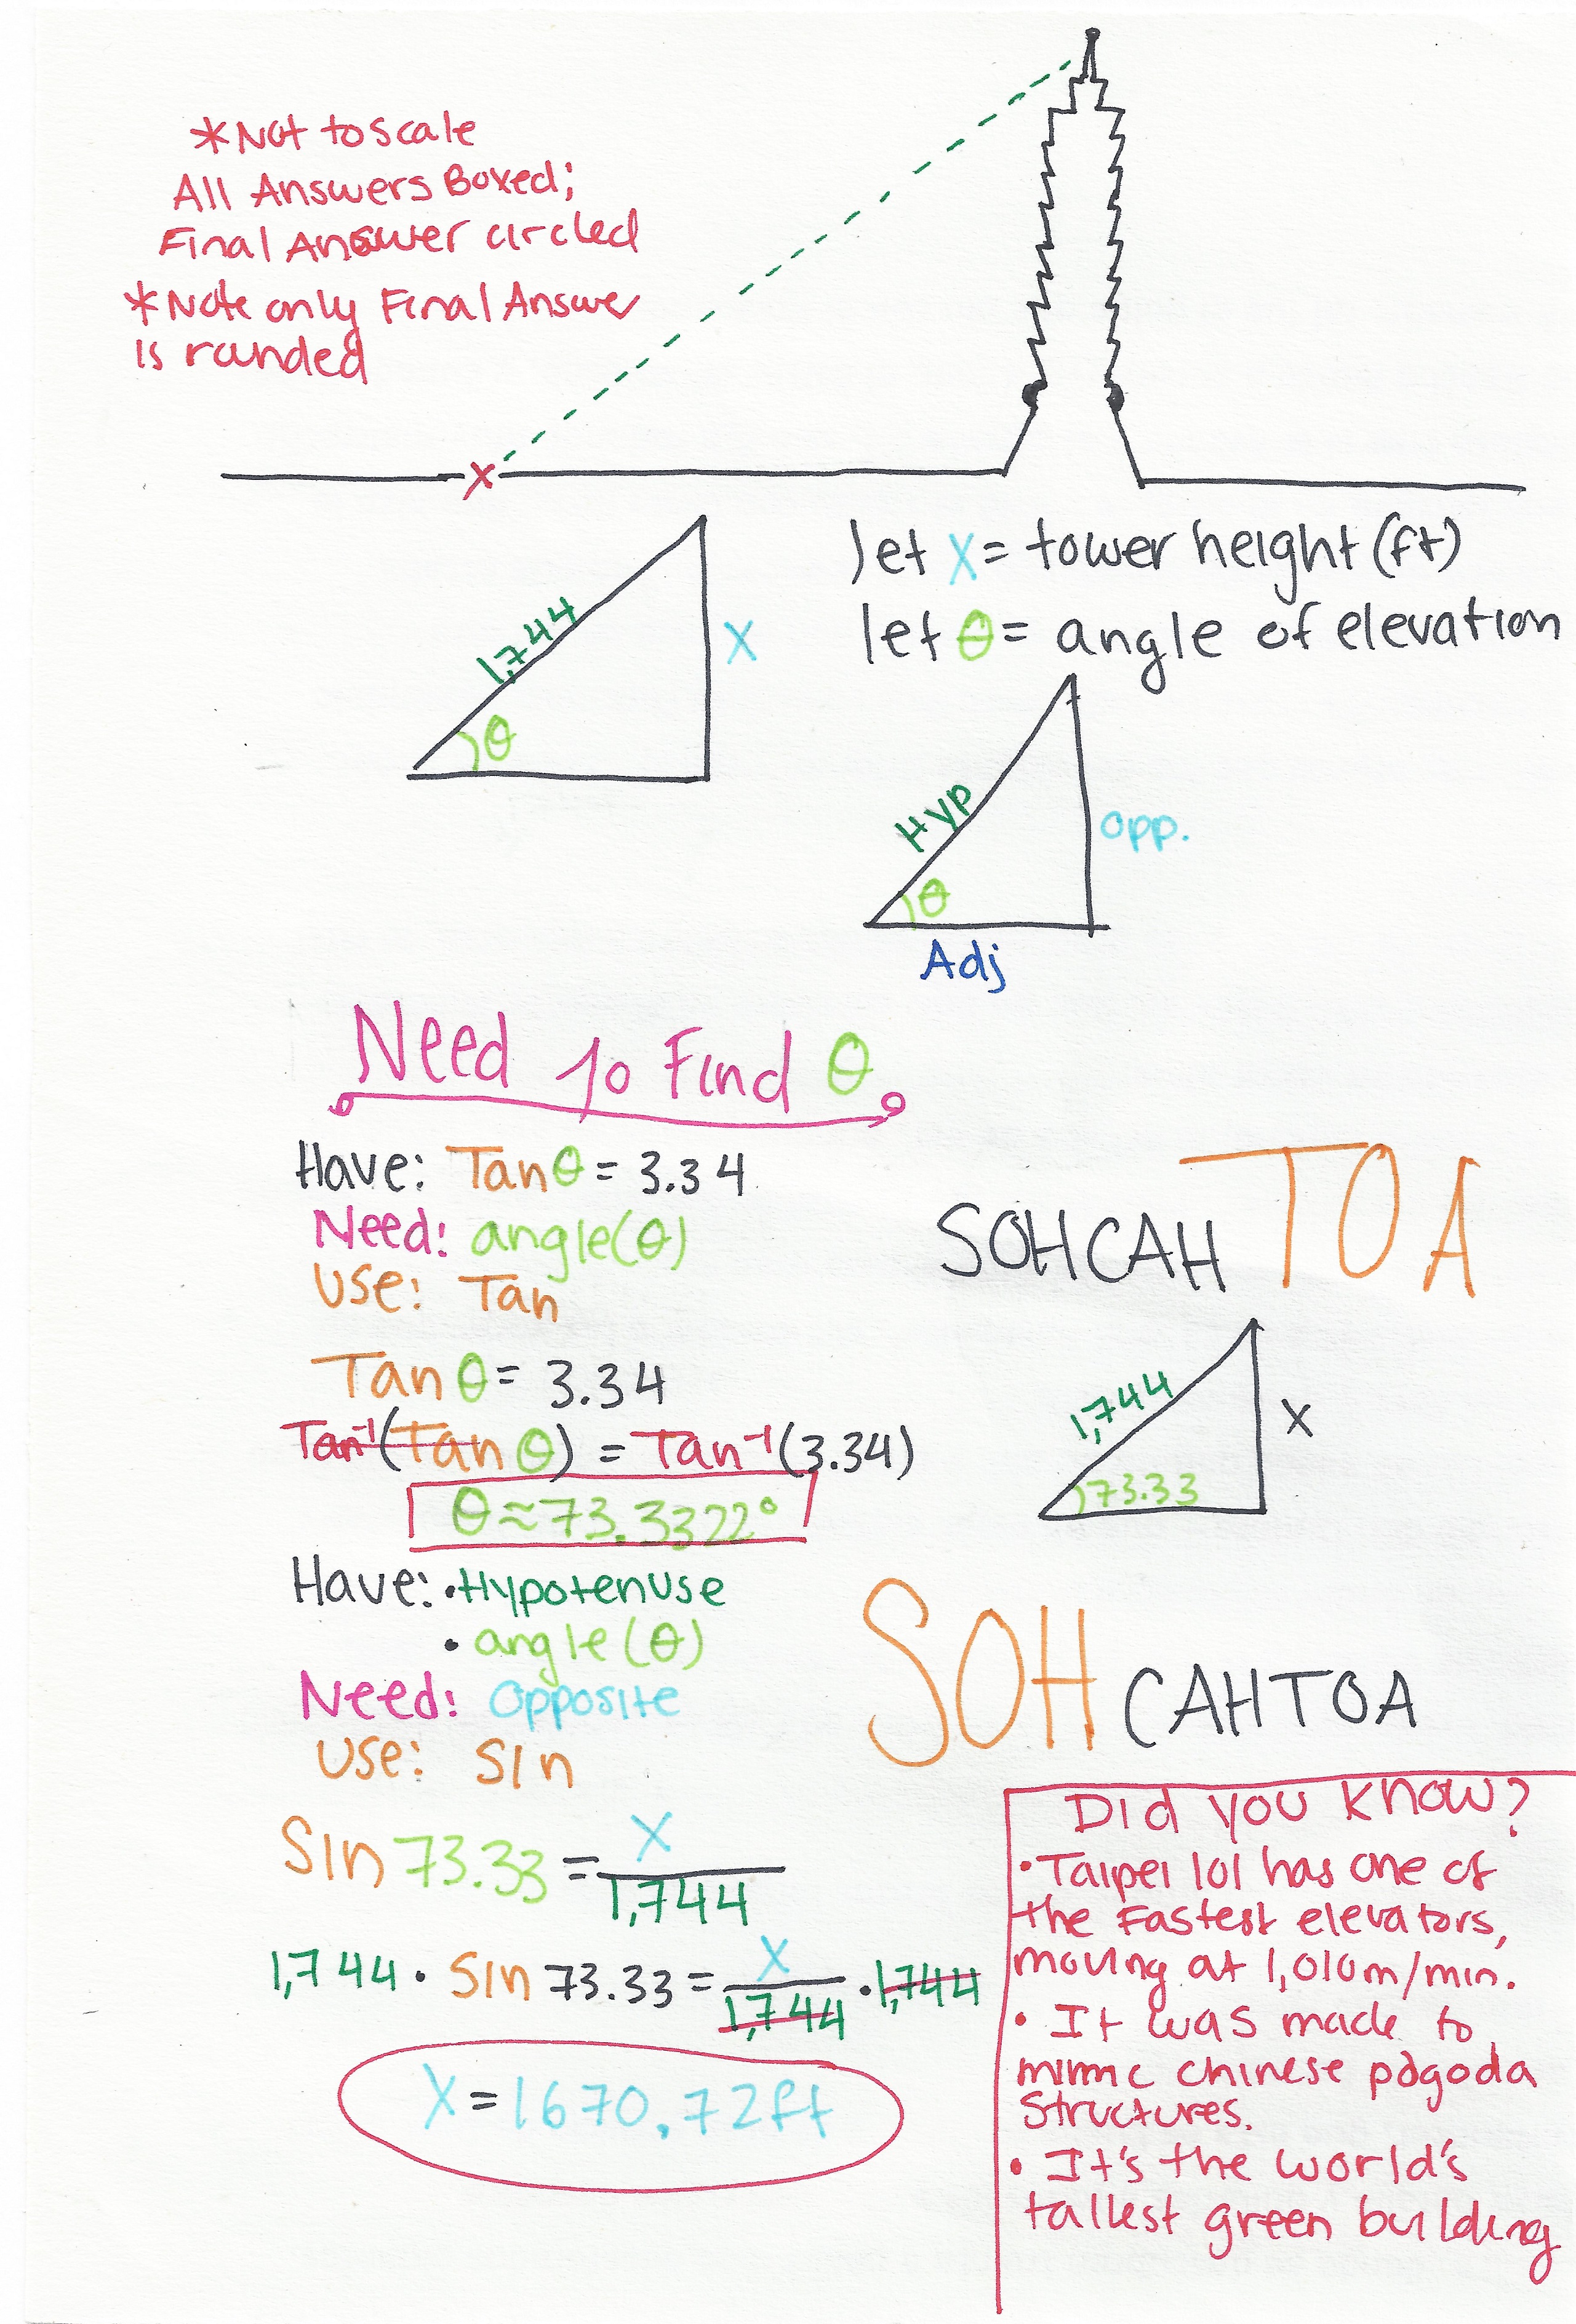 *Not to scale
All Answers Boxed;
Final Answer circled
*Note only Final Answer
is rounded
X
let X = tower height (ft)
let θ = angle of elevation
1,744
X
θ
Hyp
Opp.
θ
Adj
Need to Find θ
Have: Tan θ = 3.34
Need: angle (θ)
Use: Tan
SOHCAHTOA
Tan θ = 3.34
Tan⁻¹(Tan θ) = Tan⁻¹(3.34)
θ ≈ 73.3322°
1,744
X
73.33
Have: • Hypotenuse
• angle (θ)
Need: Opposite
Use: Sin
SOHCAHTOA
Sin 73.33 = X / 1,744
1,744 • Sin 73.33 = X / 1,744 • 1,744
X = 1670.72ft
Did you know?
• Taipei 101 has one of
the Fastest elevators,
moving at 1,010m/min.
• It was made to
mimic chinese pagoda
structures.
• It's the world's
tallest green building